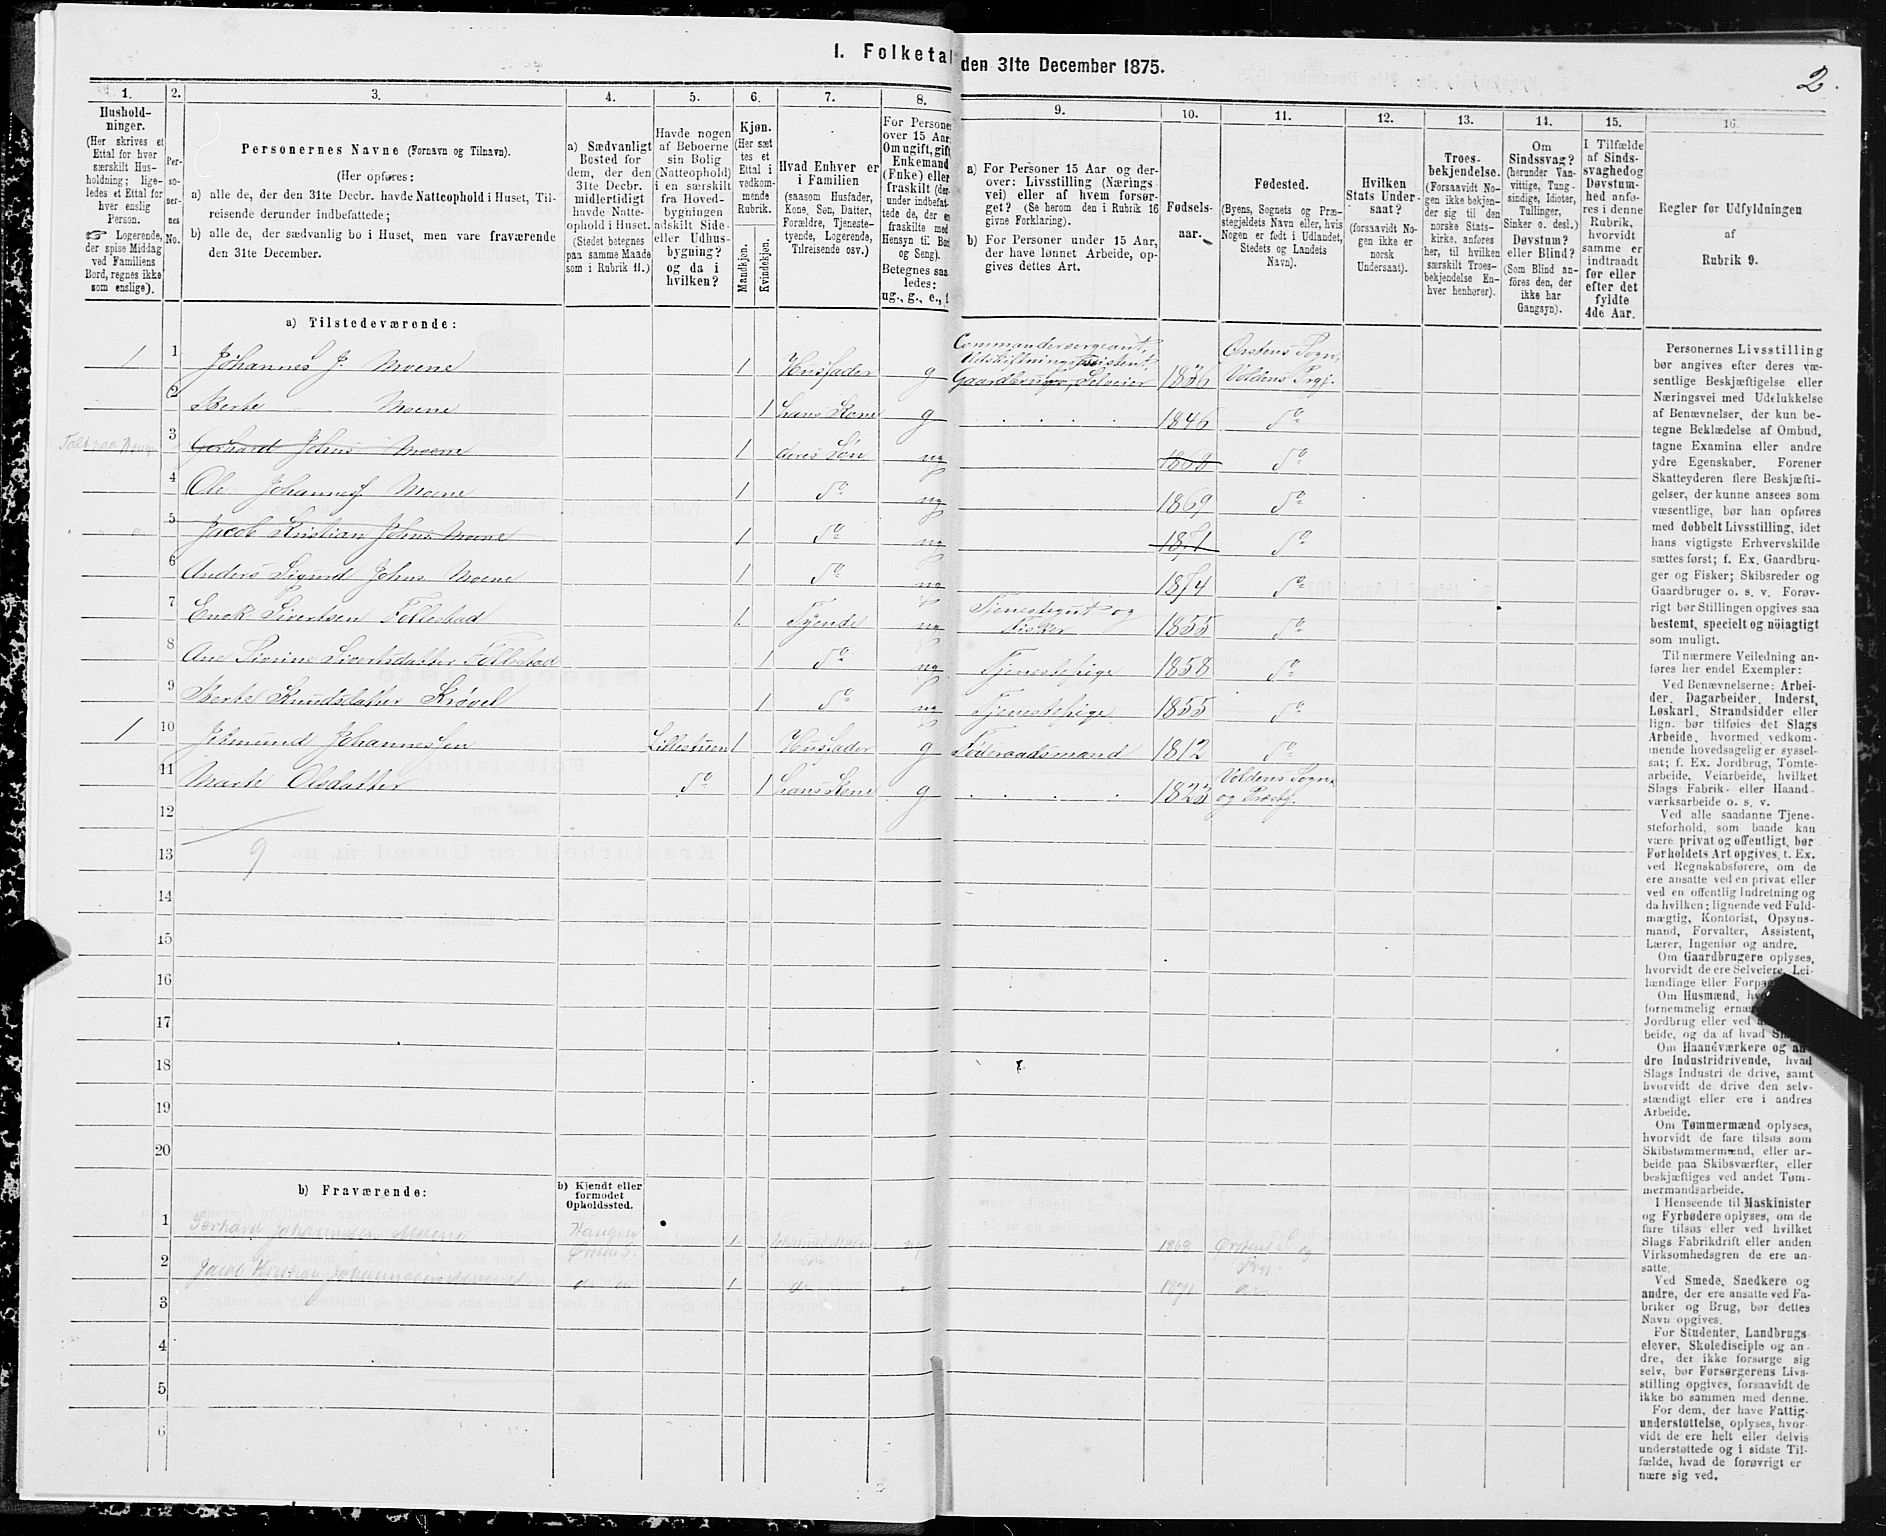 1. Folketal den 31te December 1875.
2.
1. 2. 3. 4. 5. 6. 7. 8. 9. 10. 11. 12. 13. 14. 15. 16.
Hushold-
ninger.
(Her skrives et
Ettal for hver
særskilt Hus-
holdning; lige-
ledes et Ettal for
hver enslig
Person.
☞ Logerende,
der spise Middag
ved Familiens
Bord, regnes ikke
som enslige).
Per-
so-
ner-
nes
No.
Personernes Navne (Fornavn og Tilnavn).
(Her opføres:
a) alle de, der den 31te Decbr. havde Natteophold i Huset, Til-
reisende derunder indbefattede;
b) alle de, der sædvanlig bo i Huset, men vare fraværende
den 31te December.
a) Sædvanligt
Bosted for
dem, der den
31te Decbr.
midlertidigt
havde Natte-
ophold i Huset.
(Stedet betegnes
paa samme Maade
som i Rubrik 11.)
Havde nogen
af Beboerne
sin Bolig
(Natteophold)
i en særskilt
fra Hoved-
bygningen
adskilt Side-
eller Udhus-
bygning?
og da i
hvilken?
Kjøn.
(Her sæt-
tes et
Ettal i
vedkom-
mende
Rubrik.
Mandkjøn.
Kvindekjøn.
Hvad Enhver er
i Familien
(saasom Husfader,
Kone, Søn, Datter,
Forældre, Tjeneste-
tyende, Logerende,
Tilreisende osv.)
For Personer
over 15 Aar
Om ugift, gift
Enkemand
(Enke) eller
fraskilt (der-
under indbefat-
tede de, der er
fraskilte med
Hensyn til Bord
og Seng).
Betegnes saa-
ledes:
ug., g., e., f
a) For Personer 15 Aar og der-
over: Livsstilling (Nærings-
vei) eller af hvem forsør-
get? (Se herom den i Rubrik 16
givne Forklaring).
b) For Personer under 15 Aar,
der have lønnet Arbeide, op-
gives dettes Art.
Fødsels-
aar.
Fødested.
(Byens, Sognets og Præ-
stegjeldets Navn eller, hvis
Nogen er født i Udlandet,
Stedets og Landets
Navn).
Hvilken
Stats Under-
saat?
(forsaavidt No-
gen ikke er
norsk
Undersaat).
Troes-
bekjendelse.
(Forsaavidt No-
gen ikke bekjen-
der sig til den
norske Stats-
kirke, anføres
her, til hvilken
særskilt Troes-
bekjendelse En-
hver henhører).
Om
Sindssvag?
(herunder Van-
vittige, Tung-
sindige, Idioter,
Tullinger,
Sinker o. desl.)
Døvstum?
eller Blind?
(Som Blind an-
føres den, der
ikke har
Gangsyn).
I Tilfælde
af Sinds-
svaghed og
Døvstum-
hed anfø-
res i denne
Rubrik,
hvorvidt
samme er
indtraadt
før eller
efter det
fyldte
4de Aar.
Regler før Udfyldningen
af
Rubrik 9.
a) Tilstedeværende:
Commandersergeant,
Udskiftningsassistent
1 1 Johannes J. Moene 1 Husfader g Gaardbruger, Selveier 1836 Ørstens Sogn, Voldens Prgj.
2 Berte Moene 1 hans Kone g 1846 do
3 Gerhard Johns Moene 1 deres Søn ug 1868 do
4 Ole Johanness Moene 1 do ug 1869 do
5 Jacob Kristian Johns Moene 1 do ug 1871 do
6 Anders Sigurd Johns Moene 1 do ug 1874 do
7 Enek Sivertsen Follestad 1 Tyende ug Tjenestegut og Fisker 1855 do
8 Ane Sivrine Sivertsdatter Follestad 1 do ug Tjenestepige 1858 do
9 Berte Knudsdatter Krøvel 1 do ug Tjenestepige 1855 do
1 10 Jetmund Johannessen Lillestuen 1 Husfader g Føderaadsmand 1812 do
11 Marte Olsdatter do 1 hans Kone g 1823 Voldens Sogn og Præstg.
12
13 9
14
15
16
17
18
19
20
b) Fraværende:
b) Kjendt eller
formodet
Opholdssted.
1 Gerhard Johannessen Moene 1 1868 Ørstens S. og Prg.
2 Jacob Kristian Johannessen 1 do 1871 do
3
4
5
6
Personernes Livsstilling
bør angives efter deres væ-
sentlige Beskjæftigelse eller
Næringsvei med Udelukkelse
af Benævnelser, der kun be-
tegne Beklædelse af Ombud,
tagne Examina eller andre
ydre Egenskaber. Forener
Skatteyderen flere Beskjæfti-
gelser, der kunne ansees som
væsentlige, bør han opføres
med dobbelt Livsstilling, idet
hans vigtigste Erhvervskilde
sættes først; f. Ex. Gaardbru-
ger og Fisker; Skibsreder og
Gaardbruger o. s. v. Forøv-
rigt bør Stillingen opgives saa
bestemt, specielt og nøiagtigt
som muligt.
Til nærmere Veiledning an-
føres her endel Exempler:
Ved Benævnelserne: Arbei-
der, Dagarbeider, Inderst,
Løskarl, Strandsidder eller
lign. bør tilføies det Slags
Arbeide, hvormed vedkom-
mende hovedsagelig er syssel-
sat; f. Ex. Jordbrug, Tomte-
arbeide, Veiarbeide, hvilket
Slags Fabrik- eller Haand-
værksarbeide o. s. v.
Ved alle saadanne Tjene-
steforhold, som baade kan
være privat og offentligt, bør
Forholdets Art opgives, t. Ex.
ved Regnskabsførere, om de
ere ansatte ved en privat eller
ved en offentlig Indretning og
da hvilken; lignende ved Fuld-
mægtig, Kontorist, Opsyns-
mand, Forvalter, Assistent,
Lærer, Ingeniør og andre.
Om Gaardbrugere oplyses,
hvorvidt de ere Selveiere, Lei-
lændinge eller
Om Husmænd,
fornemmelig
Jordbrug eller ved
beide, og da af hvad
Om Haandværkere og an-
dre Industridrivende, hvad
Slags Industri de drive, samt
hvorvidt de drive den selv-
stændigt eller ere i andres
Arbeide.
Om Tømmermænd oplyses,
hvorvidt de fare tilsøs som
Skibstømmermænd, eller ar-
beide paa Skibsværfter, eller
beskjæftiges ved andet Tøm-
mermandsarbeide.
I Henseende til Maskinister
og Fyrbødere oplyses, om de
fare tilsøs eller ved hvilket
Slags Fabrikdrift eller anden
Virksomhedsgren de ere an-
satte.
Ved Smede, Snedkere og
andre, der ere ansatte ved Fa-
briker og Brug, bør dettes
Navn opgives.
For Studenter, Landbrugs-
elever, Skoledisciple og an-
dre, der ikke forsørge sig
selv, bør Forsørgerens Livs-
stilling opgives, forsaavidt de
ikke bo sammen med denne.
For dem, der have Fattig-
understøttelse, oplyses, hvor-
vidt de ere helt eller delvis
understøttede og i sidste Til-
fælde, hvad de forøvrigt er
nære sig ved.